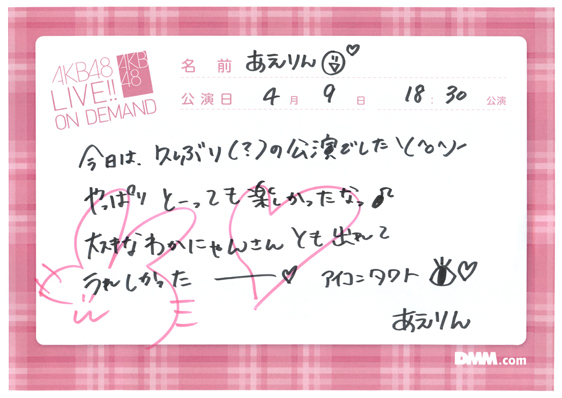 AKB48
LIVE!!
ON DEMAND
AKB
48
名前 あえりん♡
公演日 4月9日 18:30公演
今日は、久しぶり(?)の公演でした\(^o^)/
やっぱり とーっても楽しかったなっ♪
大好きなわかにゃんさん とも 出れて
うれしかった ―――♡ アイコンタクト ♡
あえりん
DMM.com